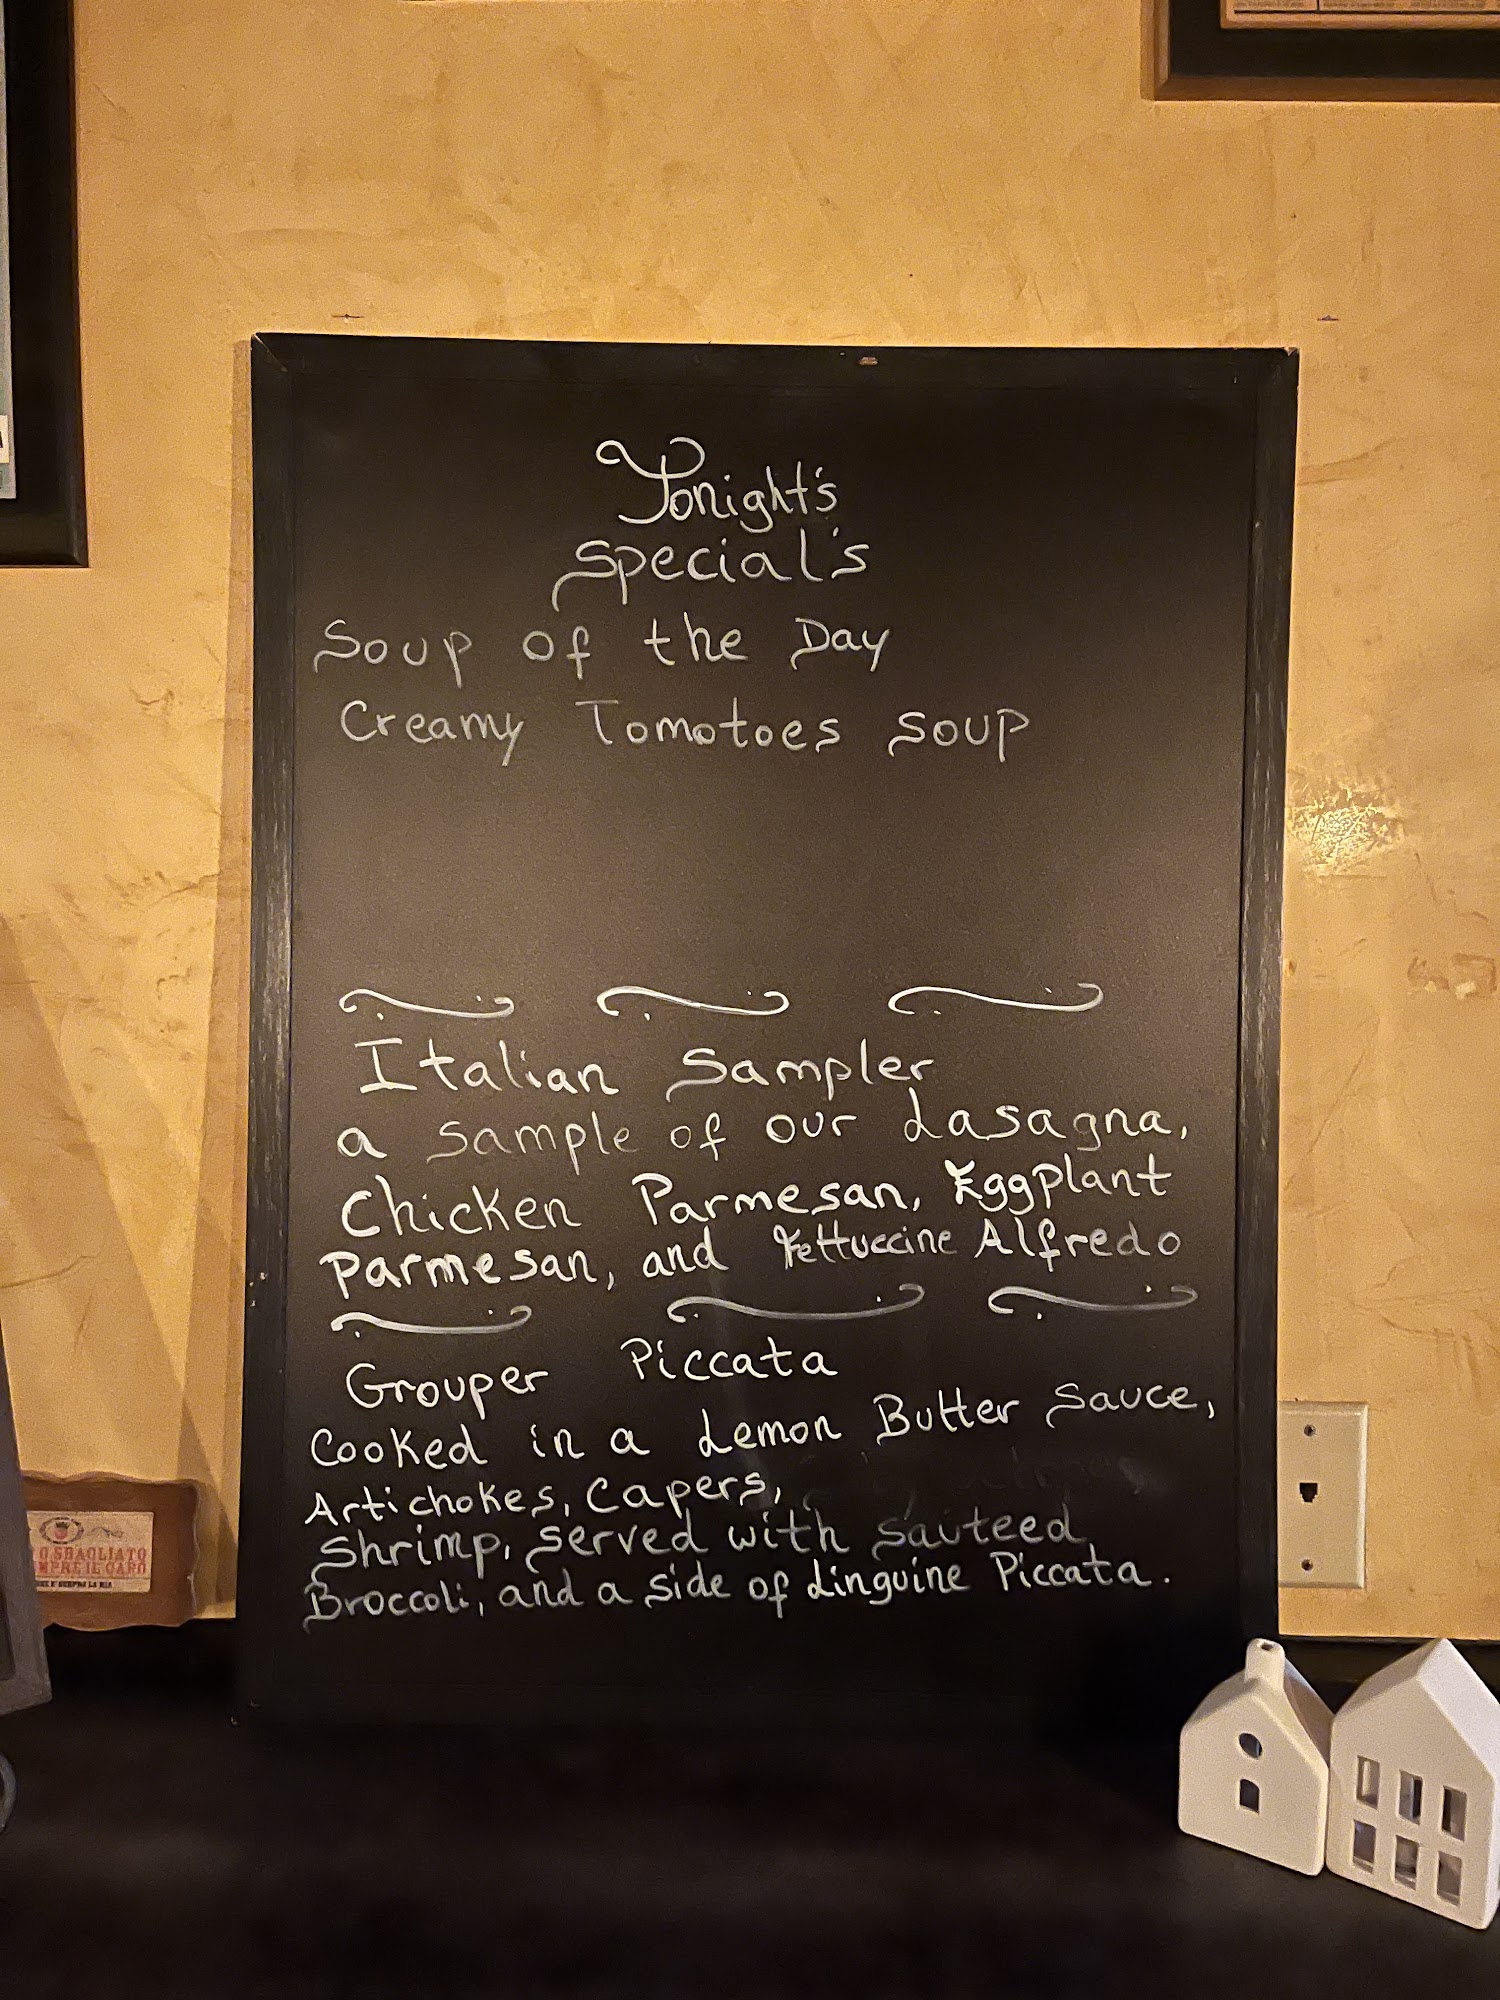 Tonight's
Special's
Soup of the Day
Creamy Tomotoes soup
Italian Sampler
a sample of our Lasagna,
Chicken Parmesan, Eggplant
Parmesan, and Fettuccine Alfredo
Grouper Piccata
Cooked in a Lemon Butter Sauce,
Artichokes, Capers,
Shrimp, served with Sauteed
Broccoli, and a side of Linguine Piccata.
O SBAGLIATO
MPRE IL CAPO